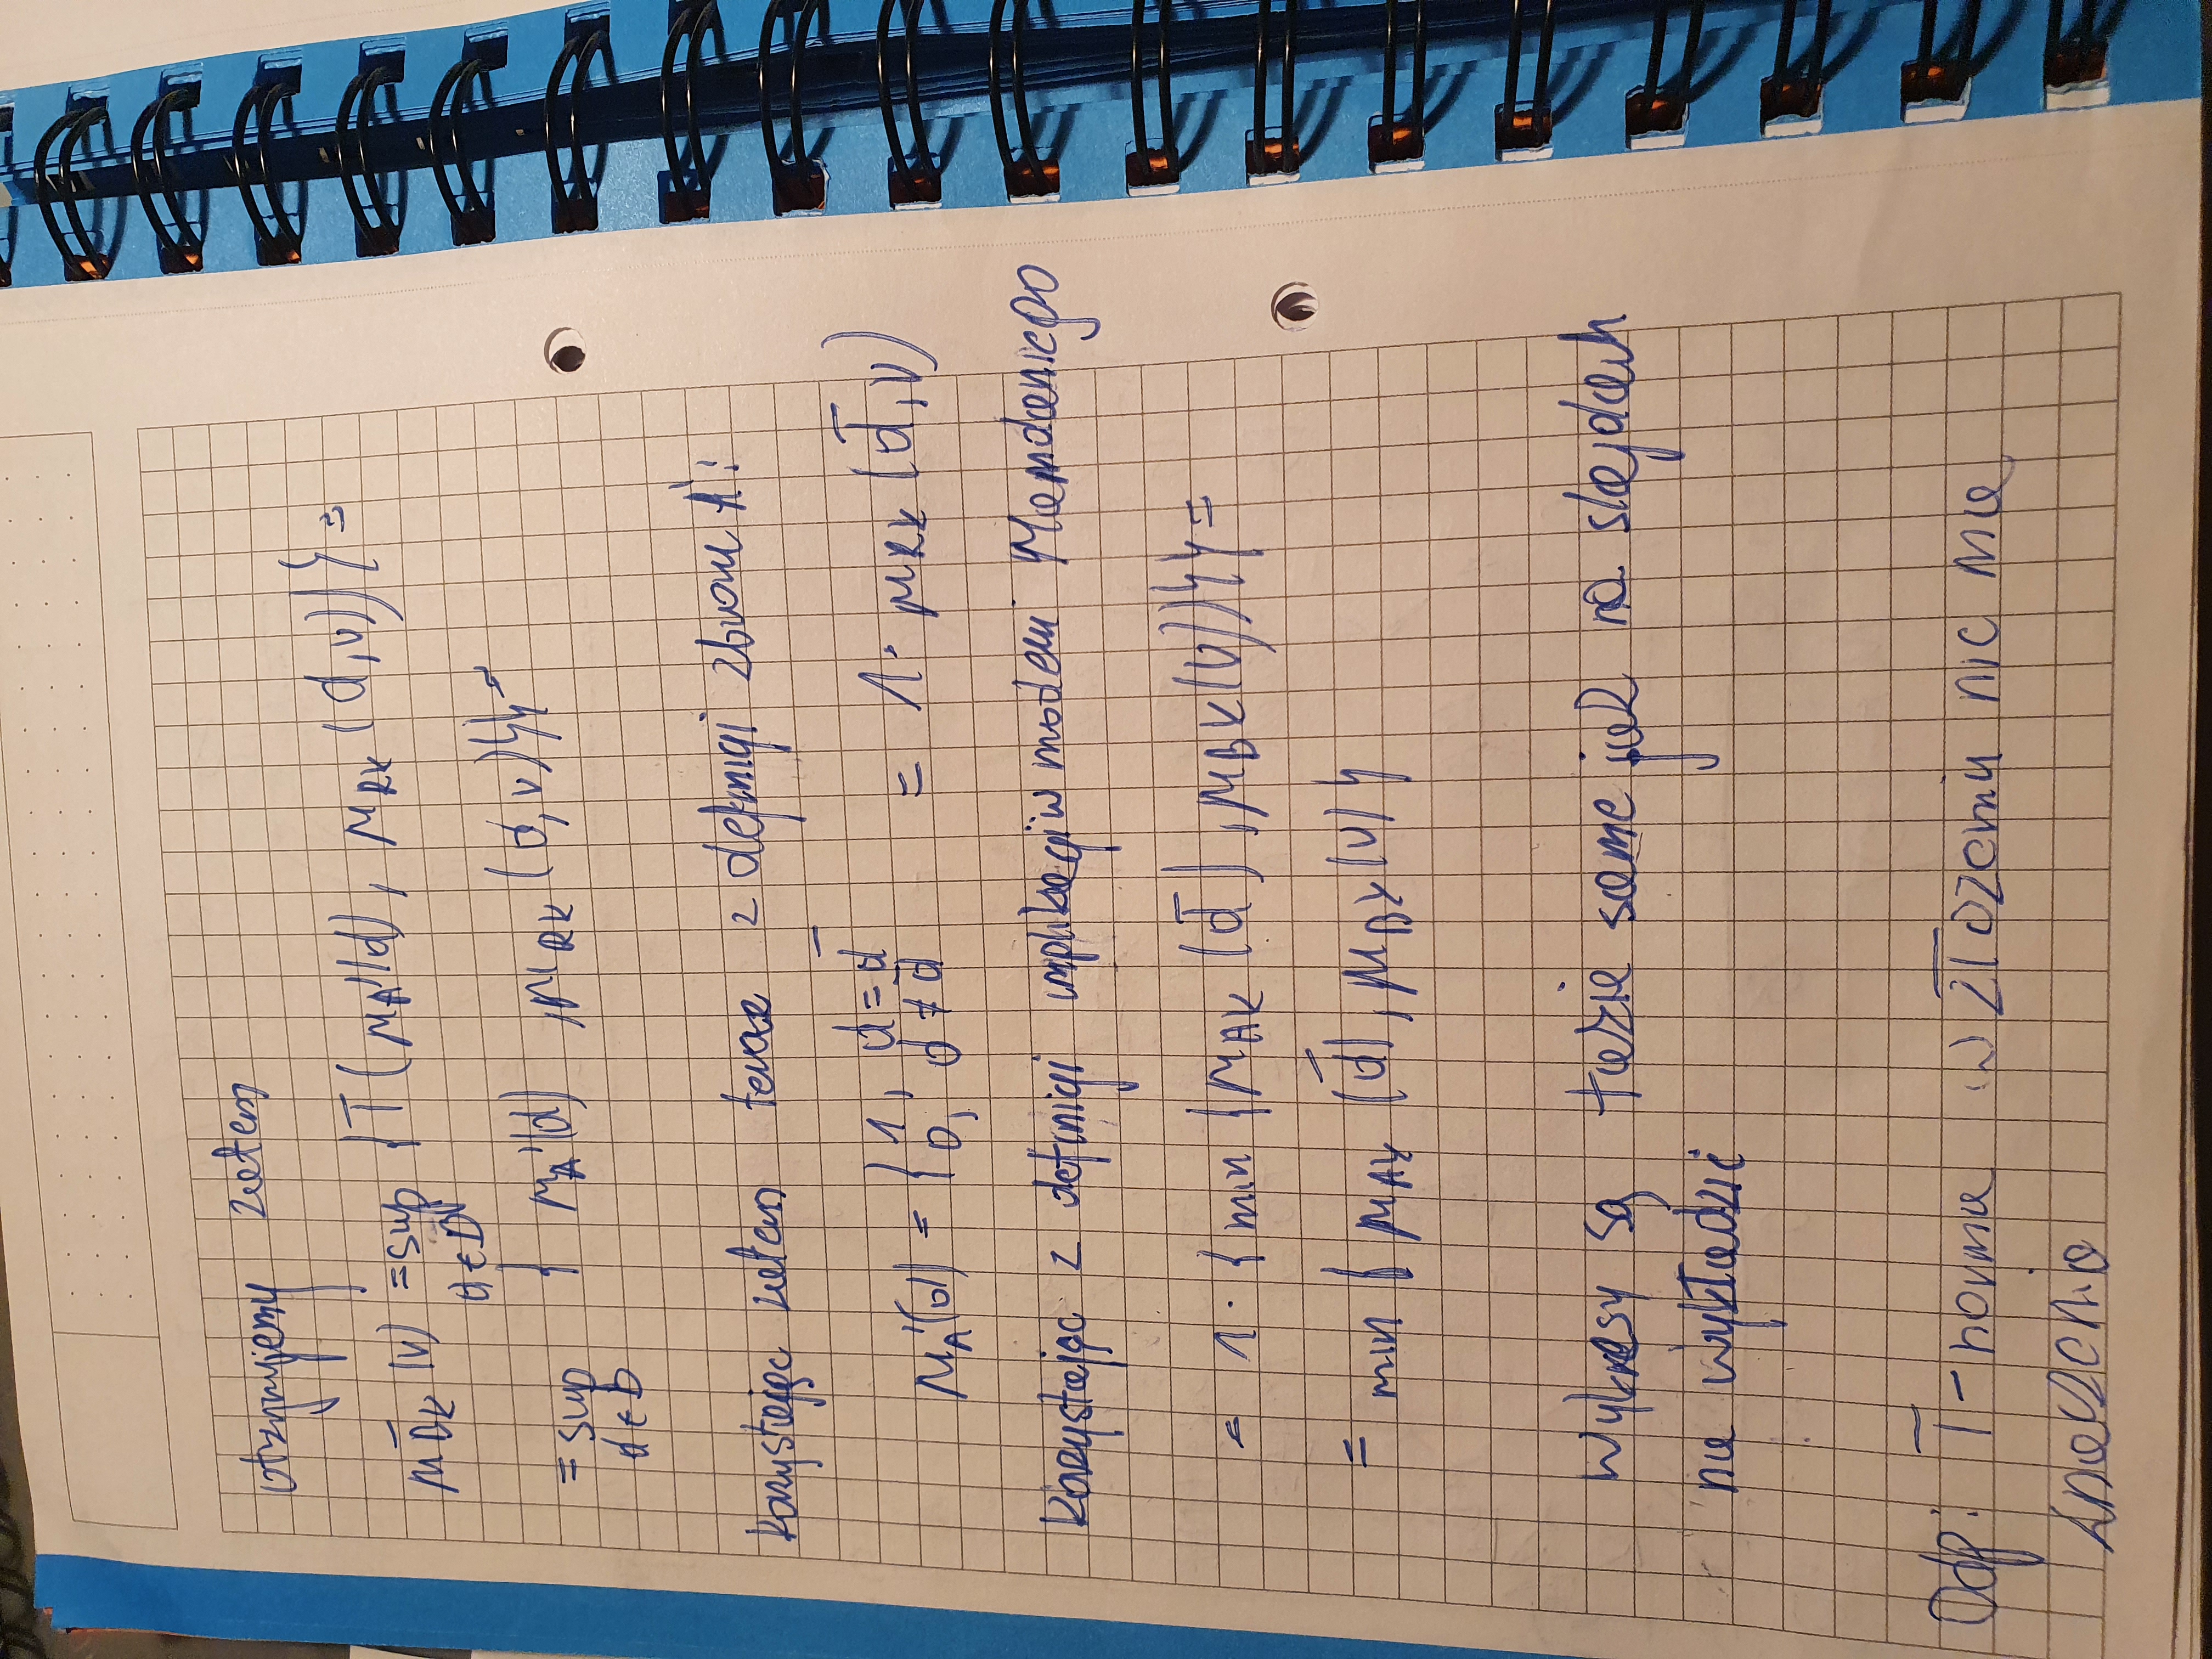 otrzymujemy zatem
μ_B̄K (v) = sup {T(μ_A'(d), μ_RK (d,v))} =
d ∈ D
= sup { μ_A'(d) , μ_RK (d,v)}} =
d ∈ D
korzystając zatem teraz z definicji zbioru A':
μ_A'(d) = { 1, d = d̄ = 1 · μ_RK (d̄,v)
0, d ≠ d̄
korzystając z definicji implikacji w modelu Mamdaniego
= 1 · { min {μ_AK (d̄), μ_BK (v))}} =
= min { μ_AK (d̄), μ_BK (v) }
Wykresy są takie same jak na slajdach
na wykładzie
Odp: T-norma w złożeniu nic ma
znaczenia